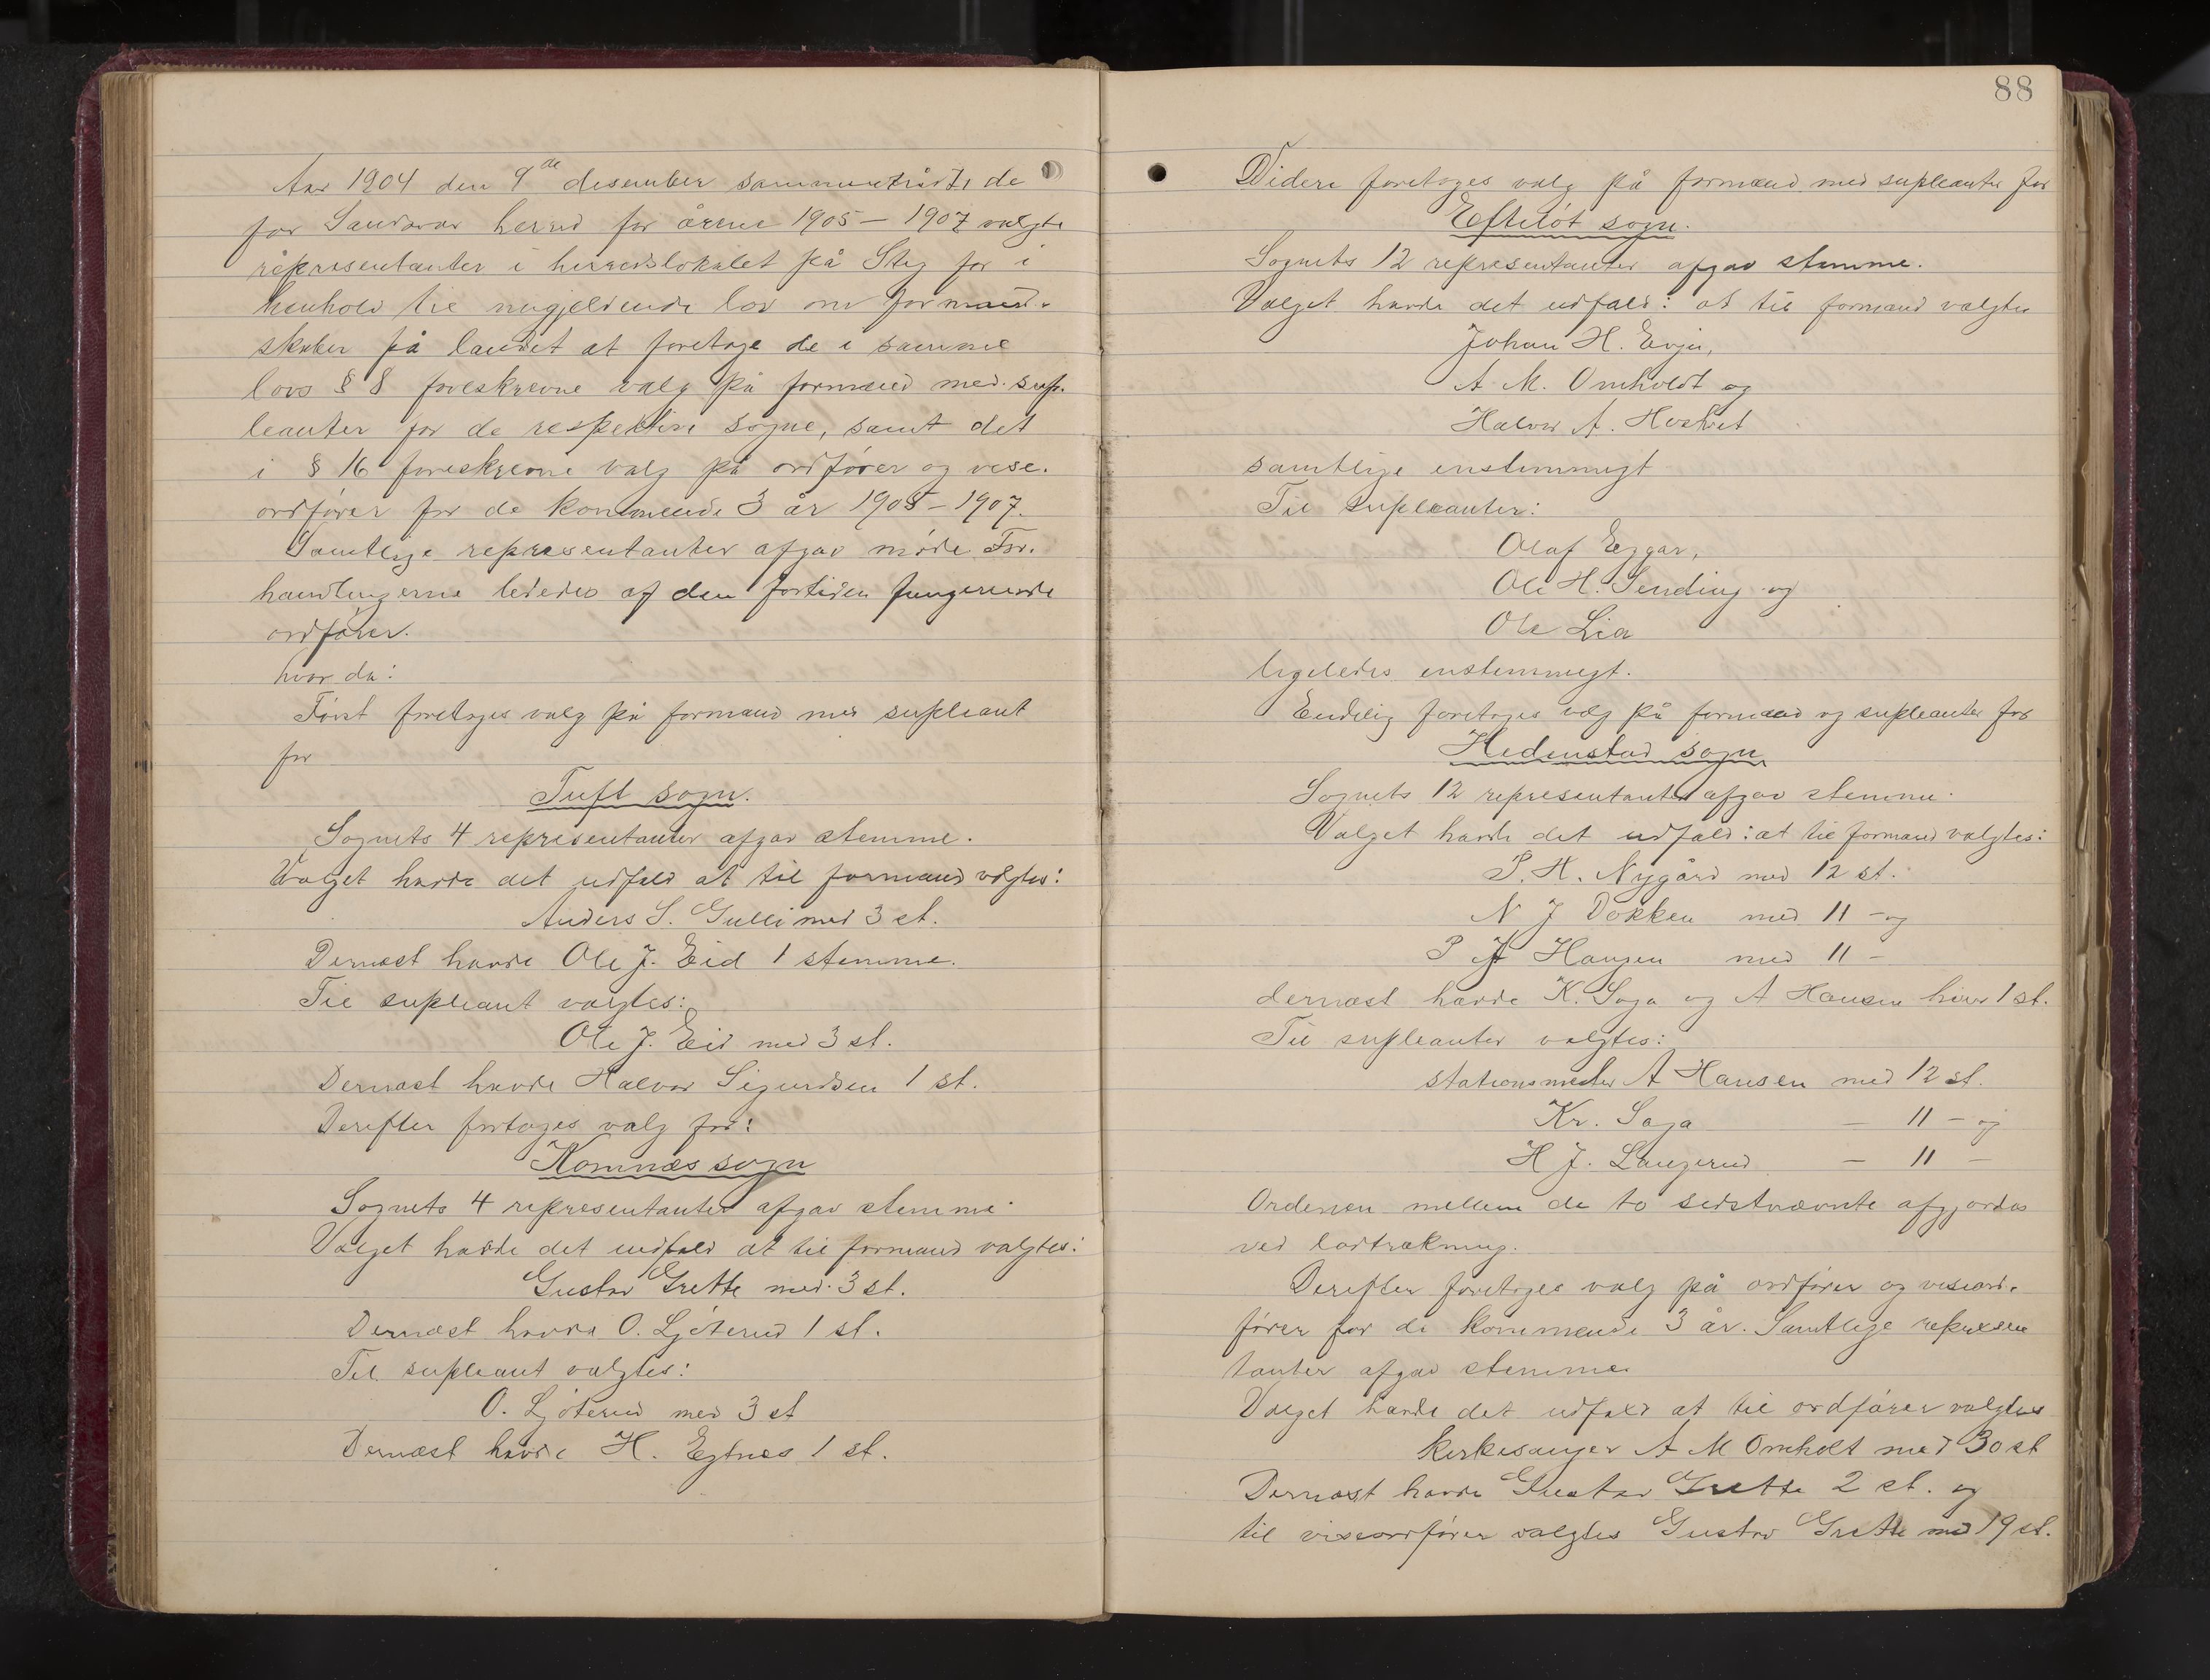 Aar 1904 den 9de desember sammentrådte de
for Sandsvær herred for årene 1905 – 1907 valgte
representanter i herredslokalet på Steg for i
henhold til nugjeldende lov om formand-
skaber på landet at foretage de i samme
lovs § 8 foreskrevne valg på formænd med sup-
leanter for de respektive sogne, samt det
i § 16 foreskrevne valg på ordfører og vise-
ordfører for de kommende 3 år 1905 – 1907.
Samtlige representanter afgav møde. For-
handlingerne lededes af den fortiden fungerende
ordfører.
hvor da:
Først foretoges valg på formand med supleant
for
Tuft sogn.
Sognets 4 representanter afgav stemme.
Valget havde det udfald at til formand valgtes:
Anders S. Gulli med 3 st.
Dernæst havde Ole J. Eid 1 stemme.
Til supleant valgtes:
Ole J. Eid med 3 st.
Dernæst havde Halvor Sigurdsen 1 st.
Derefter fortoges valg for:
Komnæs sogn
Sognets 4 representanter afgav stemme
Valget havde det udfald at til formand valgtes:
Gustav Grette med 3 st.
Dernæst havde O. Ljøterud 1 st.
Til supleant valgtes:
O. Ljøterud med 3 st
Dernæst havde H. Egtnes 1 st.
88
Videre foretoges valg på formænd med supleanter for
Efteløt sogn.
Sognets 12 representanter afgav stemme.
Valget havde det udfald: at til formænd valgtes
Johan H. Evju,
A. M. Omholdt og
Halvor A. Hostvet
samtlige enstemmigt
Til supleanter:
Olaf Eggar,
Ole H. Sending og
Ole Lia
ligeledes enstemmigt.
Endelig foretoges valg på formænd og supleanter for
Hedenstad sogn
Sognets 12 representanter afgav stemme.
Valget havde det udfald: at til formænd valgtes:
P. H. Nygård med 12 st.
N J Dokken med 11 – og
P A Haugen med 11 –
dernæst havde K. Saga og A Hansen hver 1 st.
Til supleanter valgtes:
stationsmester A Hansen med 12 st.
Kr. Saga – 11 – og
H J. Langerud – 11 –
Ordenen mellem de to sidstnævnte afgjordes
ved lodtrækning.
Derefter foretoges valg på ordfører og viseord-
fører for de kommende 3 år. Samtlige represen
tanter afgav stemme.
Valget havde det udfald at til ordfører valgtes
kirkesanger A M Omholt med 30 st
Dernæst havde Gustav Grette 2 st. og
til viseordfører valgtes Gustav Grette med 19 st.